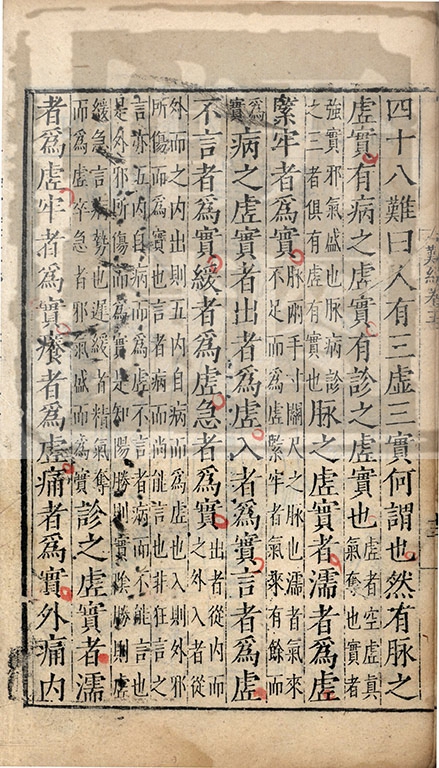 四十八難曰人有三虛三實何謂也然有脉之
虛實有病之虛實有診之虛實也虛者空虛真氣奪也實者
強實邪氣盛也脉病診之三者俱有虛有實也脉之虛實者濡者爲虛
緊牢者爲實脉兩手寸關尺之脉也濡者氣來不足而爲虛緊牢者氣來有餘而
爲實病之虛實者出者爲虛入者爲實言者爲虛
不言者爲實緩者爲虛急者爲實出者從內而之外入者從
外而之內出則五內自病而爲虛也入則外邪
所傷而爲實也言者病而尚能言也非狂言之
言亦五內自病而爲虛不言者病而不能言也
是外邪所傷而爲實是知陽勝則實陰勝則虛
緩急言病勢也遲緩者精氣奪而爲虛卒急者邪氣盛而爲實診之虛實者濡
者爲虛牢者爲實癢者爲虛痛者爲實外痛內